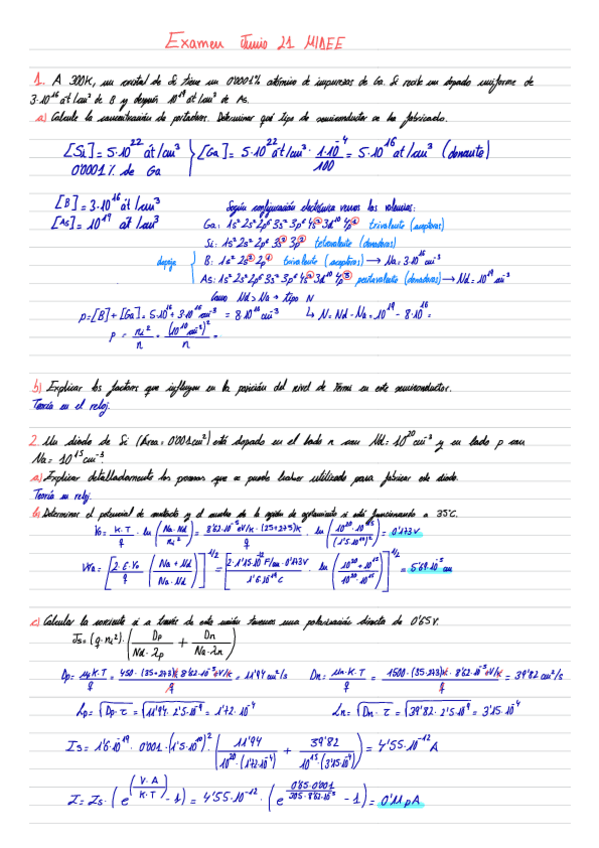 Examen Junio 21 MIDEE
1. A 300K, un cristal de Si tiene un 0'0001% atómico de impurezas de Ga. Si recibe un dopado uniforme de
3·10¹⁶ át/cm³ de B y después 10¹⁹ at/cm³ de As.
a) Calcule la concentración de portadores. Determinar qué tipo de semiconductor se ha fabricado.
[Si] = 5·10²² át/cm³ } [Ga] = 5·10²² át/cm³ · 1·10⁻⁴/100 = 5·10¹⁶ at/cm³ (donante)
0'0001% de Ga
[B] = 3·10¹⁶ át/cm³
[As] = 10¹⁹ át/cm³
Según configuración electrónica vemos las valencias:
Ga: 1s² 2s² 2p⁶ 3s² 3p⁶ 4s² 3d¹⁰ 4p¹ trivalente (aceptora)
Si: 1s² 2s² 2p⁶ 3s² 3p² tetravalente (donadoras)
B: 1s² 2s² 2p¹ trivalente (aceptora) → Na = 3·10¹⁶ cm⁻³
As: 1s² 2s² 2p⁶ 3s² 3p⁶ 4s² 3d¹⁰ 4p³ pentavalente (donadoras) → Nd = 10¹⁹ cm⁻³
Como Nd > Na → tipo N
p = [B] + [Ga] = 5·10¹⁶ + 3·10¹⁶ cm⁻³ = 8·10¹⁶ cm⁻³ ↳ N = Nd - Na = 10¹⁹ - 8·10¹⁶ =
p = ni²/n = (10¹⁰ cm⁻³)²/n =
b) Explicar los factores que influyen en la posición del nivel de Fermi en este semiconductor.
Teoría en el reloj.
2. Un diodo de Si (Área = 0'001 cm²) está dopado en el lado n con Nd = 10²⁰ cm⁻³ y en lado p con
Na = 10¹⁵ cm⁻³.
a) Explicar detalladamente los procesos que se puede haber utilizado para fabricar este diodo.
Teoría en reloj.
b) Determinar el potencial de contacto y el ancho de la región de agotamiento si está funcionando a 35°C.
V₀ = K·T/q · ln (Na·Nd/ni²) = 8'62·10⁻⁵ eV/K · (35+273)K/q · ln (10²⁰·10¹⁵/(1'5·10¹⁰)²) = 0'173V
W₀ = [2·ε·V₀/q (Na + Nd/Na·Nd)]^1/2 = [2·1'15·10⁻¹² F/cm·0'173V/1'6·10⁻¹⁹ C · (10²⁰+10¹⁵/10²⁰·10¹⁵)]^1/2 = 5'69·10⁻⁵ cm
c) Calcular la corriente si a través de esta unión tenemos una polarización directa de 0'65V.
Js = (q·ni²)·(Dp/Nd·λp + Dn/Na·λn)
Dp = μp·K·T/q = 450·(35+273)K·8'62·10⁻⁵ eV/K/q = 11'94 cm²/s Dn = μn·K·T/q = 1500·(35+273)K·8'62·10⁻⁵ eV/K/q = 39'82 cm²/s
Lp = √Dp·τ = √11'94·2'5·10⁻⁹ = 1'72·10⁻⁴ Ln = √Dn·τ = √39'82·2'5·10⁻⁹ = 3'15·10⁻⁴
Is = 1'6·10⁻¹⁹·0'001·(1'5·10¹⁰)²·(11'94/10²⁰·(1'72·10⁻⁴) + 39'82/10¹⁵·(3'15·10⁻⁴)) = 4'55·10⁻¹² A
I = Is·(e^(V·A/K·T) - 1) = 4'55·10⁻¹²·(e^(0'65·0'001/305·8'62·10⁻⁵) - 1) = 0'11 pA